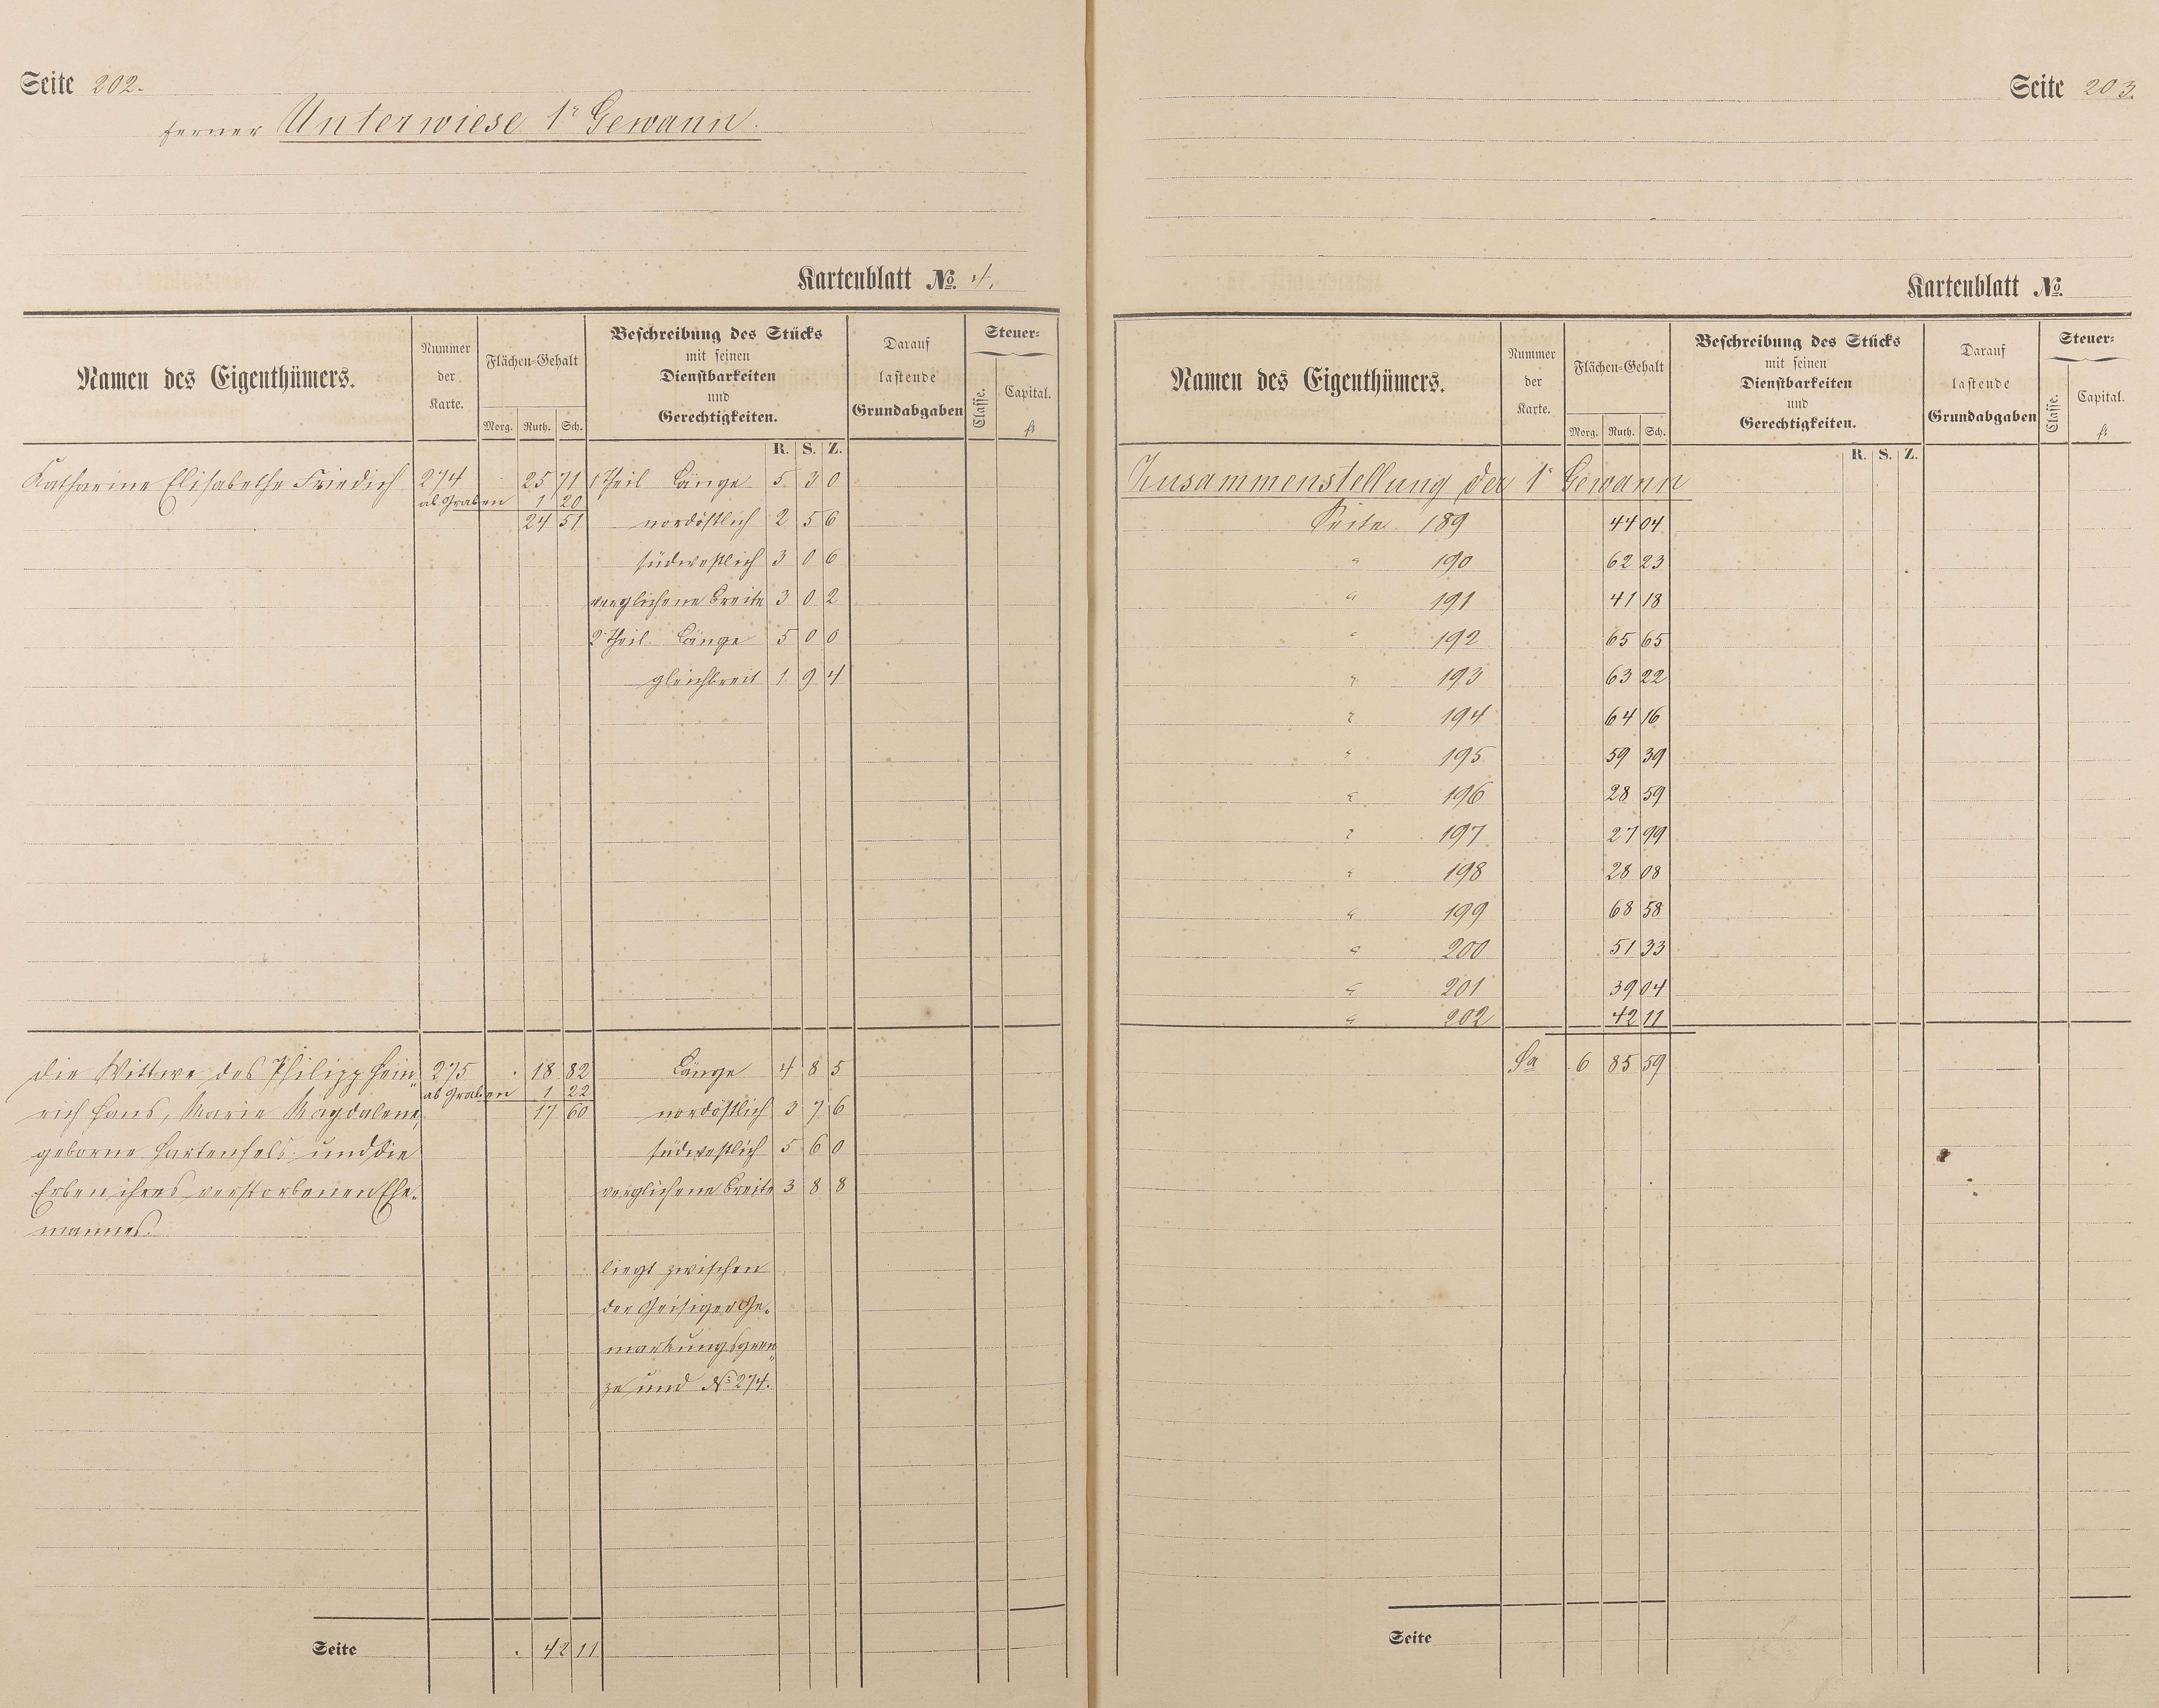 Seite 202.
ferner Unterwiese 1r Gewann.
Kartenblatt No. 4.
Namen des Eigenthümers.
Nummer der Karte.
Flächen-Gehalt
Morg. Ruth. Sch.
Beschreibung des Stücks
mit seinen
Dienstbarkeiten
und
Gerechtigkeiten.
Darauf
lastende
Grundabgaben
Steuer-
Classe. Capital.
fl
R. S. Z.
Katharine Elisabethe Friedrich 274 . 25 71 1 Theil Länge 5 3 0
ab Graben 1 20
24 51 nordöstlich 2 5 6
südwestlich 3 0 6
verglichene Breite 3 0 2
2 Theil Länge 5 0 0
gleichbreit 1 9 4
die Wittwe des Philipp Hein- 275 . 18 82 Länge 4 8 5
ab Graben 1 22
rich Haus, Marie Magdalene, 17 60 nordöstlich 3 7 6
geborne Hartenfels und die südwestlich 5 6 0
Erben ihres verstorbenen Ehe- verglichene Breite 3 8 8
mannes.
liegt zwischen
der Geisiger Ge-
markungsgren-
ze und No 274.
Seite . 42 11
Seite 203.
Kartenblatt No.
Namen des Eigenthümers.
Nummer der Karte.
Flächen-Gehalt
Morg. Ruth. Sch.
Beschreibung des Stücks
mit seinen
Dienstbarkeiten
und
Gerechtigkeiten.
Darauf
lastende
Grundabgaben
Steuer-
Classe. Capital.
fl
R. S. Z.
Zusammenstellung der 1r Gewann
Seite 189 44 04
" 190 62 23
" 191 41 18
" 192 65 65
" 193 63 22
" 194 64 16
" 195 59 39
" 196 28 59
" 197 27 99
" 198 28 08
" 199 68 58
" 200 51 33
" 201 39 04
" 202 42 11
Sa 6 85 59
Seite